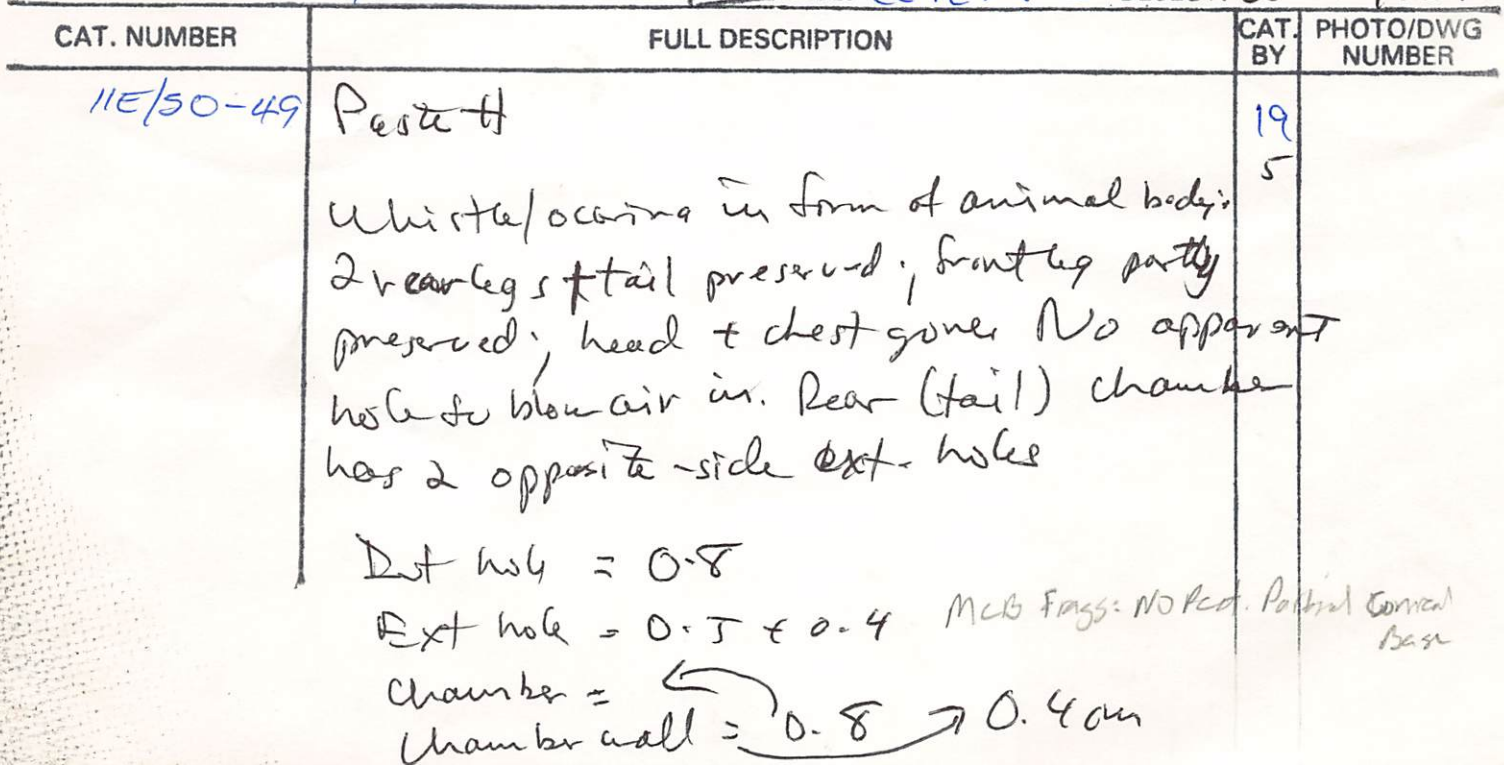 CAT. NUMBER FULL DESCRIPTION CAT. BY PHOTO/DWG NUMBER
11E/50-49 Paste H 19
5
Whistle/ocarina in form of animal body;
2 rear legs + tail preserved; front leg partly
preserved; head + chest gone. No apparent
hole to blow air in. Rear (tail) chamber
has 2 opposite-side ext. holes
Int hole = 0.8
Ext hole = 0.5 + 0.4 McB Frags: NO Ped. Partial Conical
Base
Chamber =
Chamber wall = 0.8 0.4 cm